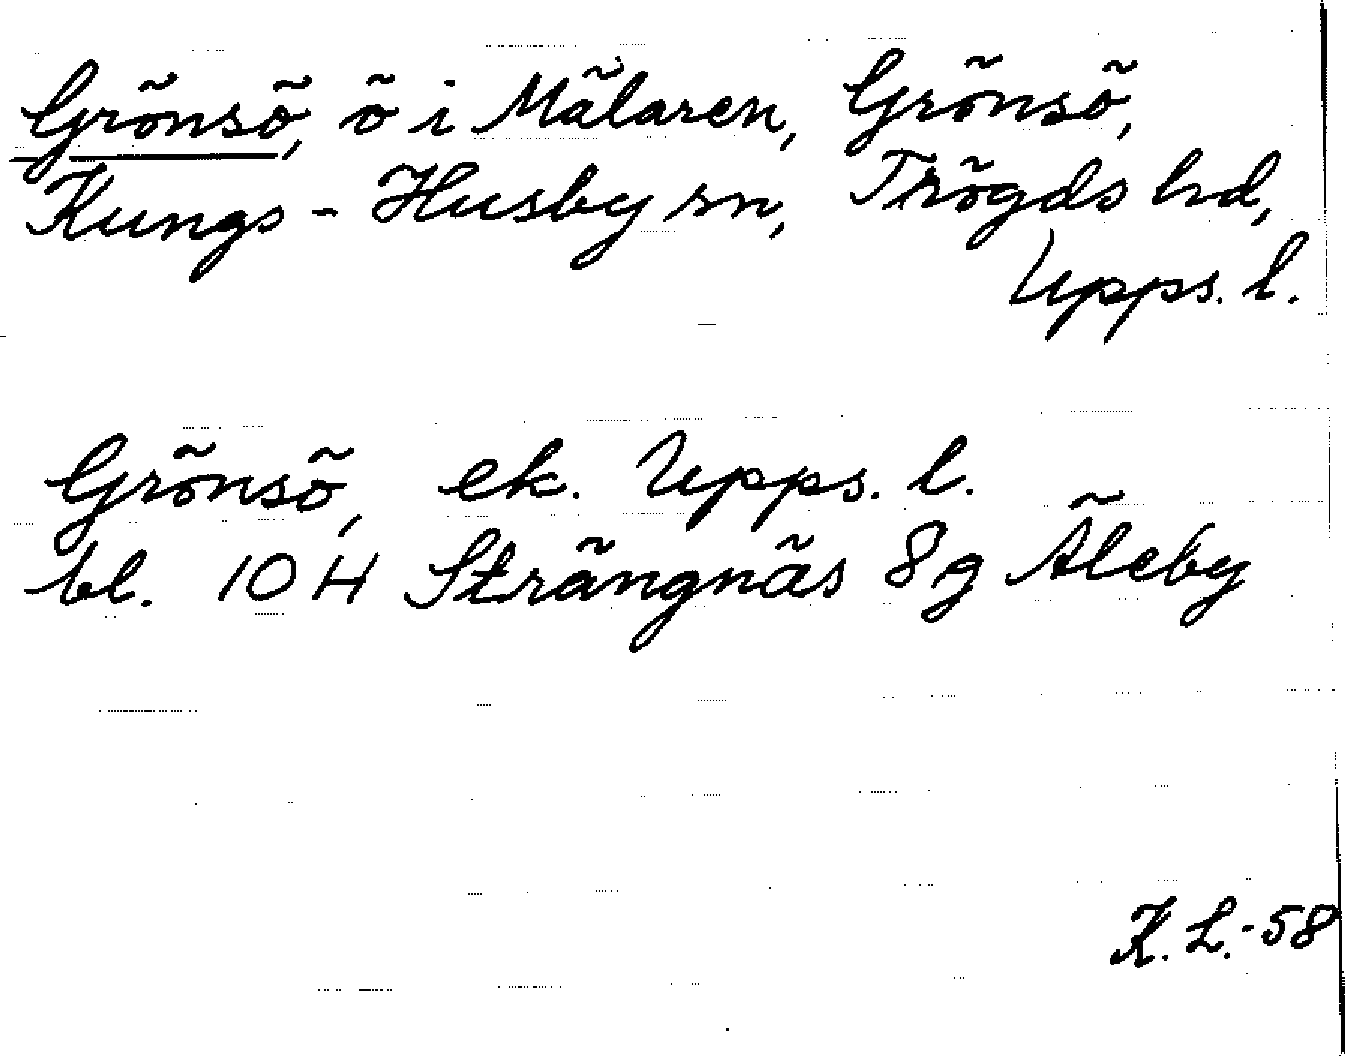 Grönsö, ö i Mälaren, Grönsö,
Kungs-Husby sn, Trögds hd,
Upps. l.
Grönsö, ek. Upps. l.
bl. 10 H Strängnäs 8g Äleby
K. L.-58